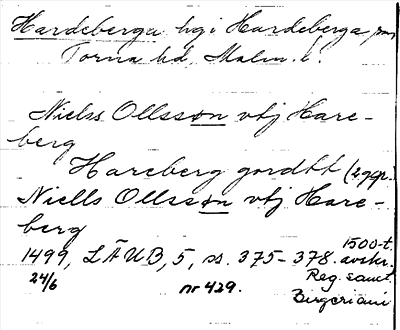 Hardeberga hg i Hardeberga sn
Torna hd, Malm. l.
Nielss Ollsson vtj Hare-
berg
Hareberg gordtt (2 ggr)
Niells Ollsson vtj Hare-
berg
1499, LÄUB, 5, ss. 375-378. 1500-t. avskr.
24/6 nr 429. Reg. sanct.
Birgeriani